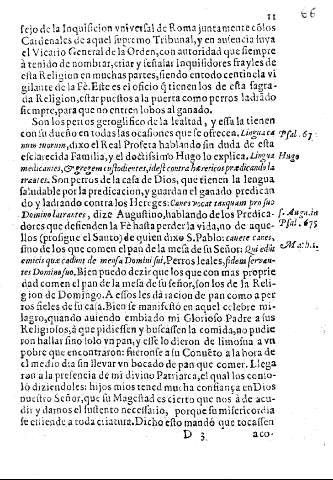 11
66
sejo de la Inquisicion vniversal de Roma juntamente cõ los
Cardenales de aquel supremo Tribunal, y en ausencia suya
el Vicario General de la Orden, con autoridad que siempre
à tenido de nombrar, criar y señalar Inquisidores frayles de
esta Religion en muchas partes, siendo en todo centinela vi
gilante de la Fè. Este es el oficio q̃ tienen los de esta sagra-
da Religion, estar puestos a la puerta como perros ladrãdo
siempre, para que no entren lobos al ganado.
Son los perros geroglifico de la lealtad, y essa la tienen
con su dueño en todas las ocasiones que se ofrecen. Lingua ca
num tuorum, dixo el Real Profeta hablando sin duda de esta
esclarecida Familia, y el doctissimo Hugo lo explica, Lingua
medicantes, & gregem custodientes, idest contra hæreticos prædicando la
trantes. Son perros de la casa de Dios, que tienen la lengua
saludable por la predicacion, y guardan el ganado predican
do y ladrando contra los Hereges: Canes vocat tanquam pro suo
Domino latrantes, dize Augustino, hablando de los Predica-
dores que defienden la Fè hasta perder la vida, no de aque-
llos (prosigue el Santo) de quien dixo S. Pablo: cavete canes,
sino de los que comen el pan de la mesa de su Señor: Qui edũt
emicis quæ cadunt de mensa Domini sui, Perros leales, fidem servan-
tes Domino suo. Bien puedo dezir que los que con mas proprie
dad comen el pan de la mesa de su señor, son los de la Reli-
gion de Domingo. A essos les dà racion de pan como a per
ros fieles de su casa. Bien se manifestò en aquel celebre mi-
lagro, quando auiendo embiado mi Glorioso Padre a sus
Religiosos, à que pidiessen y buscassen la comida, no pudie
ron hallar sino solo vn pan, y esse lo dieron de limosna a vn
pobre que encontraron: fueronse a su Convẽto a la hora de
el medio dia sin llevar vn bocado de pan que comer. Llega
ron a la presencia de mi divino Patriarca, el qual los conso-
lò diziendoles: hijos mios tened mucha confiança en Dios
nuestro Señor, que su Magestad es cierto que nos à de acu-
dir y darnos el sustento necessario, porque su misericordia
se estiende a toda criatura. Dicho esto mandò que tocassen
D 3.
aco-
Psal. 67.
Hugo
S. Aug. in
Psal. 675